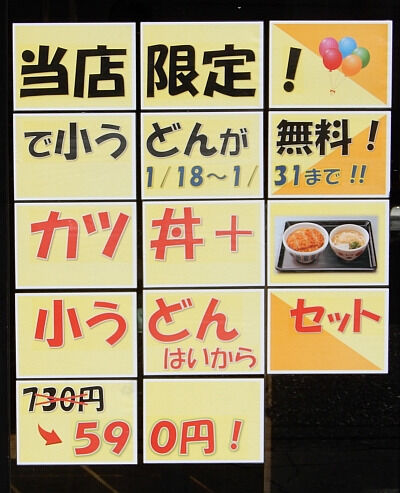 当店限定！
で小うどんが無料！
1/18〜1/31まで!!
カツ丼＋
小うどんセット
はいから
730円
590円！